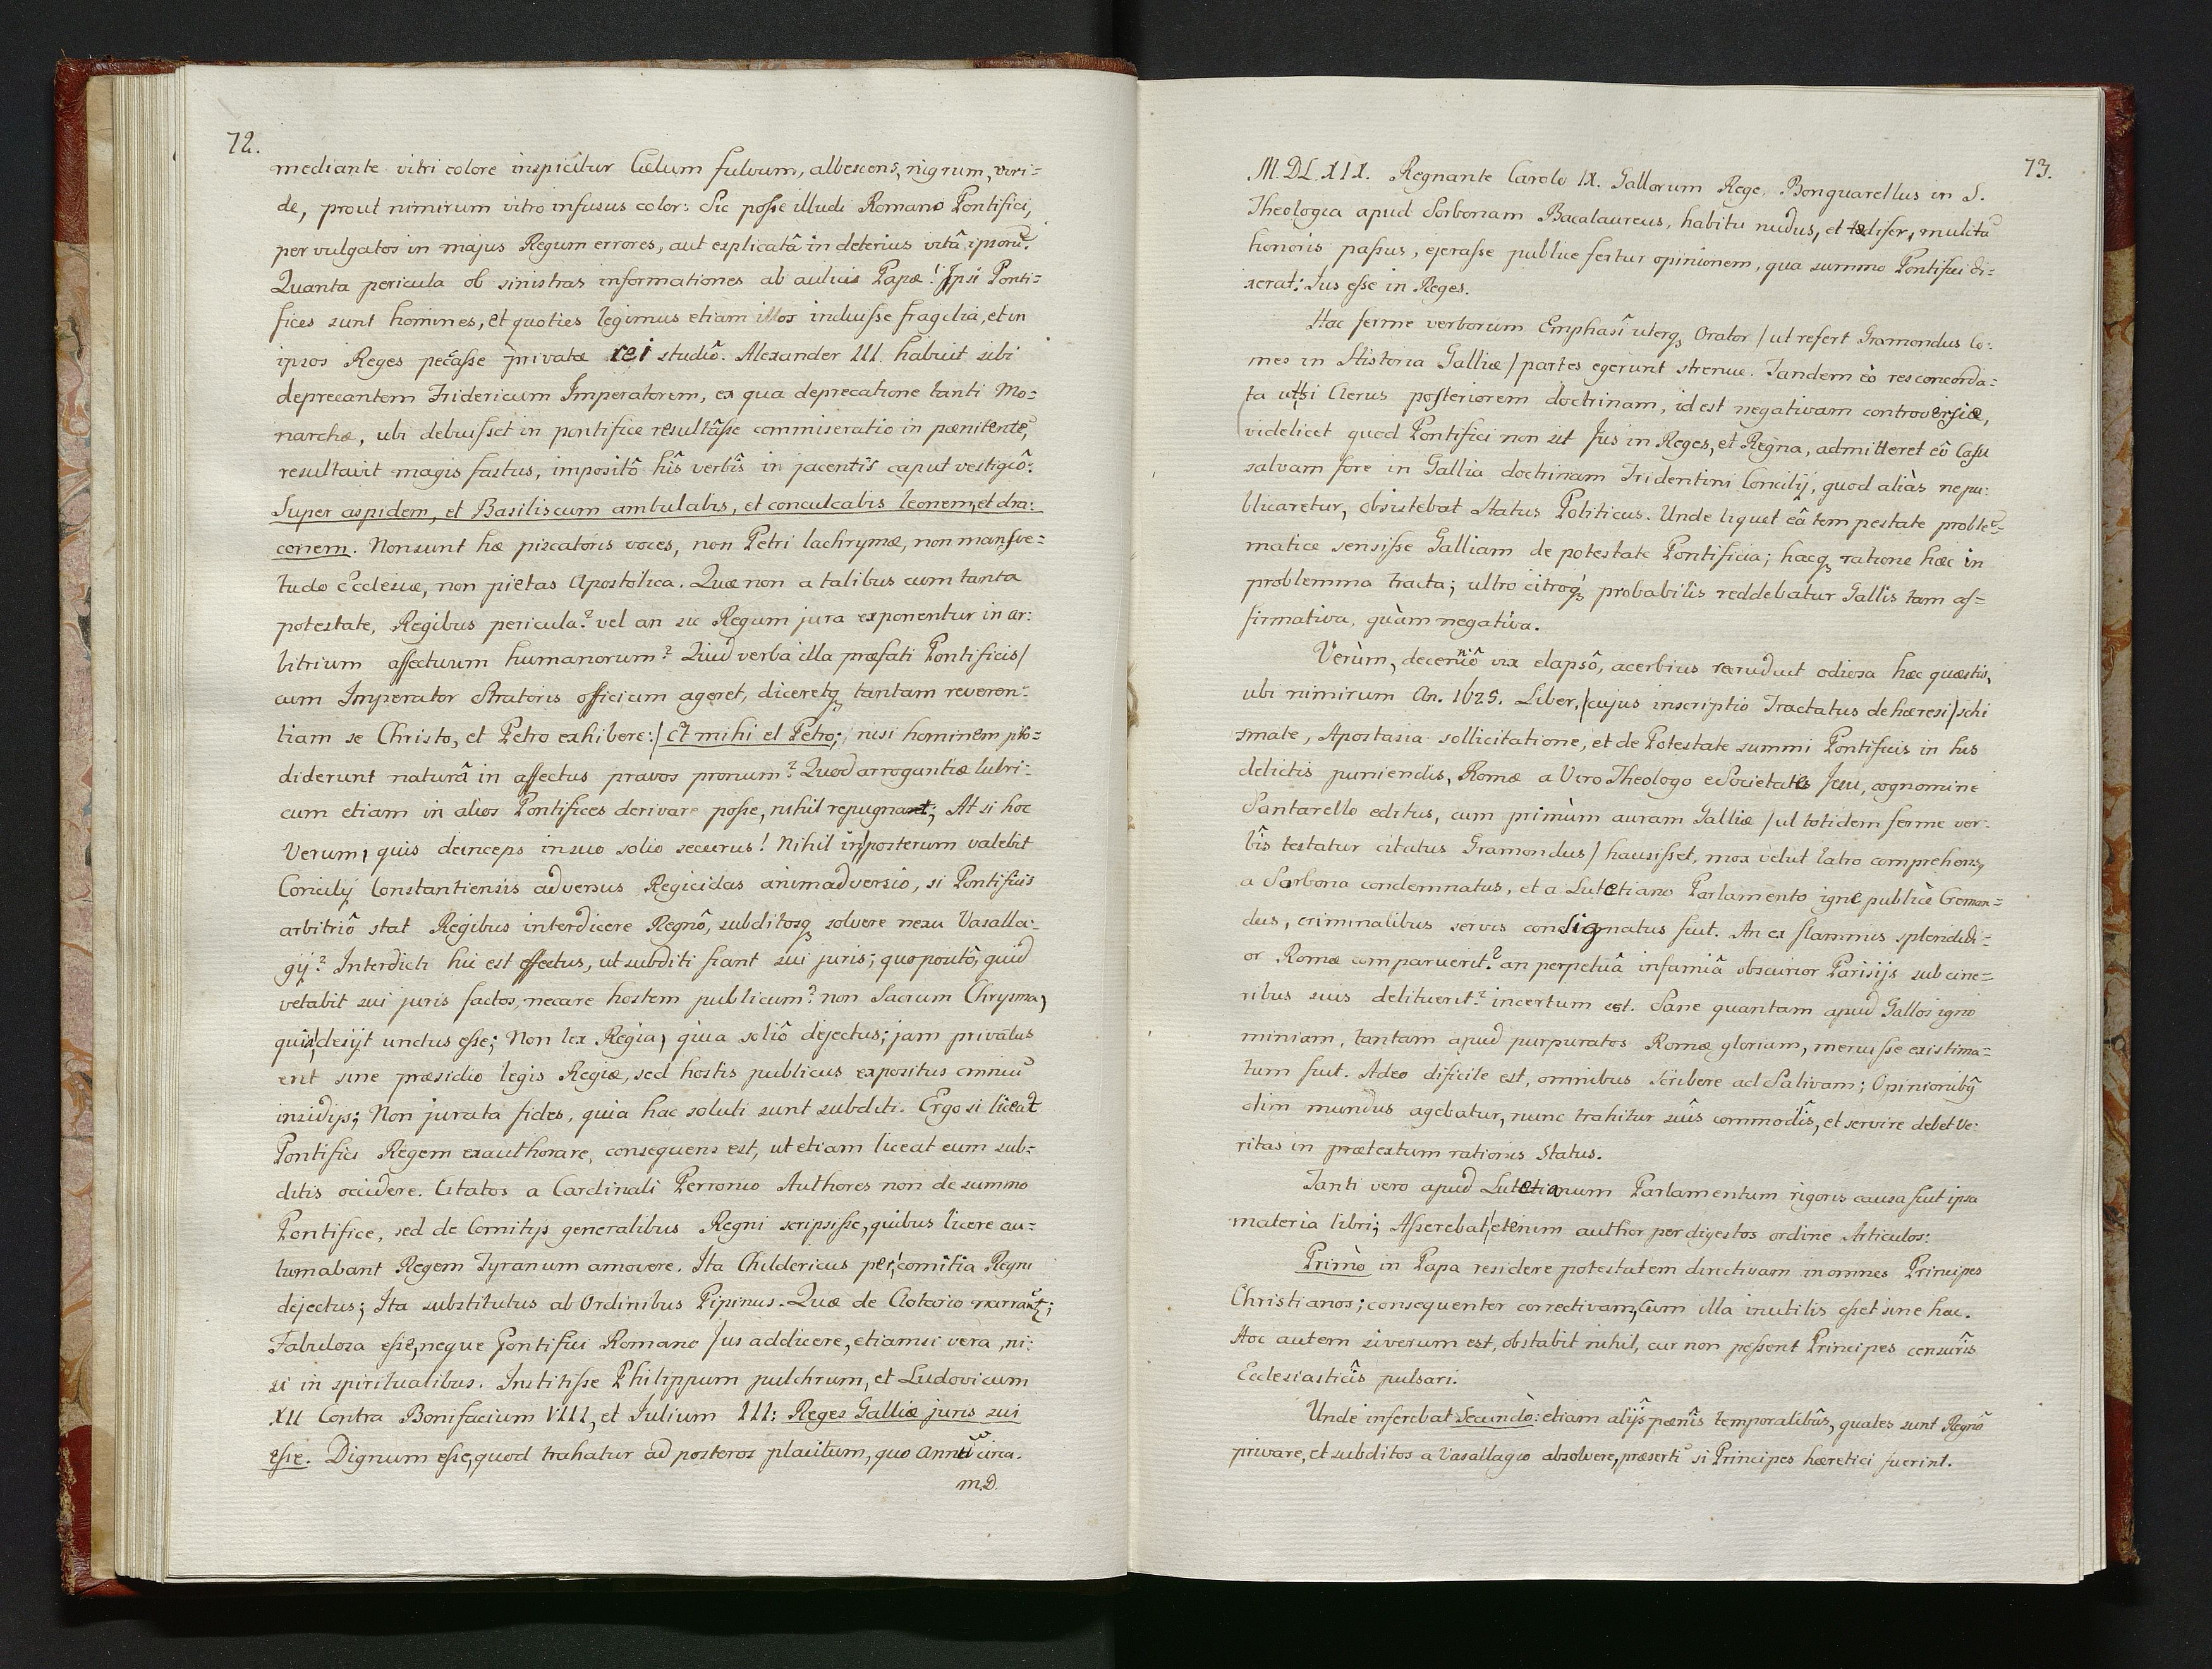 72.
mediante vitri colore inspicitur Cœlum fulvum, albescens, nigrum, viri=
de, prout nimirum vitro infusus color: Sic posse illudi Romano Pontifici,
per vulgatos in majus Regum errores, aut explicatâ in deterius vitâ ipsorũ.
Quanta pericula ob sinistras informationes ab aulicis Papæ! Ipsi Ponti=
fices sunt homines, et quoties legimus etiam illos induisse fragilia, et in
ipsos Reges peccasse privatæ rei studiô. Alexander III. habuit sibi
deprecantem Fridericum Imperatorem, ex qua deprecatione tanti Mo=
narchæ, ubi debuisset in pontifice resultâsse commiseratio in pœnitentẽ,
resultavit magis fastus, impositô hîs verbîs in jacentîs caput vestigiô:
Super aspidem, et Basiliscum ambulabis, et conculcabis leonem, et dra=
conem. Non sunt hæ piscatoris voces, non Petri lachrymæ, non mansve=
tudo Ecclesiæ, non pietas Apostolica. Quæ non a talibus cum tanta
potestate, Regibus pericula? vel an sic Regum jura exponentur in ar:
bitrium affectuum humanorum? Quid verba illa præfati Pontificis/
cum Imperator Stratoris officium ageret, diceretq; tantam reveren=
tiam se Christo, et Petro exhibere:/ et mihi et Petro; nisi hominem pro=
diderunt naturâ in affectus pravos pronum? Quod arrogantiæ lubri=
cum etiam in alios Pontifices derivare posse, nihil repugnant; At si hoc
Verum, quis deinceps in suo solio securus! Nihil in posterum valebit
Concilij Constantiensis adversus Regicidas animadversio, si Pontificis
arbitriô stat Regibus interdicere Regnô, subditosq; solvere nexu Vasalla:
gij? Interdicti hic est effectus, ut subditi fiant sui juris; quo posito, quid
vetabit sui juris factos, necare hostem publicum? non Sacrum Chrysma,
quia desijt unctus esse; Non lex Regia, quia soliô dejectus; jam privatus
erit sine præsidio legis Regiæ, sed hostis publicus expositus omniũ
insidijs; Non jurata fides, quia hac soluti sunt subditi. Ergo si liceat
Pontifici Regem exauthorare, consequens est, ut etiam liceat eum sub=
ditis occidere. Citatos a Cardinali Perronio Authores non de summo
Pontifice, sed de Comitijs generalibus Regni scripsisse, quibus licere au=
tumabant Regem Tyranum amovere. Ita Childericus per comitia Regni
dejectus; Ita substitutus ab Ordinibus Pipinus. Quæ de Clotario narrant;
Fabulosa esse, neque Pontifici Romano Jus addicere, etiamsi vera, ni:
si in spiritualibus. Institisse Philippum pulchrum, et Ludovicum
XII Contra Bonifacium VIII, et Julium III: Reges Galliæ juris sui
esse. Dignum esse, quod trahatur ad posteros placitum, quo Annũ circa.
M.D.
73.
M.DL.XIX. Regnante Carolo IX. Gallorum Rege. Bonquarellus in S.
Theologia apud Sorbonam Bacalaureus, habitu nudus, et tædifer, mulctã
honoris passus, ejerasse publice fertur opinionem, qua summo Pontifici di=
xerat: Jus esse in Reges.
Hac ferme verborum Emphasi uterq; Orator /ut refert Gramondus Co:
mes in Historia Galliæ/ partes egerunt strenue. Tandem eò res concorda=
ta ut si Clerus posteriorem doctrinam, id est negativam controversiæ,
videlicet quod Pontifici non sit Jus in Reges, et Regna, admitteret eô Casu
salvam fore in Gallia doctrinam Tridentini Concilij, quod aliàs ne pu:
blicaretur, obsistebat Status Politicus. Unde liquet eâ tempestate proble=
matice sensisse Galliam de potestate Pontificia; hacq; ratione hæc in
problemma tracta; ultro citroq; probabilis reddebatur Gallis tam af=
firmativa, quàm negativa.
Verùm, decenniô vix elapsô, acerbius recruduit odiosa hæc quæstio,
ubi nimirum An. 1625. Liber, /cujus inscriptio Tractatus de hæresi/ schi
smate, Apostasia sollicitatione, et de Potestate summi Pontificis in his
delictis puniendis, Romæ a Viro Theologo e Societate Jesu, cognomine
Santarello editus, cum primùm auram Galliæ /ut totidem ferme ver:
bîs testatur citatus Gramondus/ hausisset, mox velut latro comprehensus,
a Sorbona condemnatus, et a Lutetiano Parlamento igne publicè Creman=
dus, criminalibus servis consignatus fuit. An ex flammis splendidi=
or Romæ comparuerit? an perpetuâ infamiâ obscurior Parisijs sub cine=
ribus suis delituerit? incertum est. Sane quantam apud Gallos igno
miniam, tantam apud purpuratos Romæ gloriam, meruisse existima=
tum fuit. Adeo dificile est, omnibus scribere ad Salivam; Opinionibq
olim mundus agebatur, nunc trahitur suîs commodîs, et servire debet Ve:
ritas in prætextum rationis Status.
Tanti vero apud Lutetianum Parlamentum rigoris causa fuit ipsa
materia libri; Asserebat etenim author per digestos ordine Articulos:
Primò in Papa residere potestatem directivam in omnes Principes
Christianos; consequenter correctivam, Cum illa inutilis esset sine hac.
Hoc autem si verum est, obstabit nihil, cur non possent Principes censurîs
Ecclesiasticîs pulsari.
Unde inferebat Secundò: etiam alijs pœnîs temporalibûs, quales sunt Regnô
privare, et subditos a Vasallagio absolvere, præsertĩ si Principes hæretici fuerint.